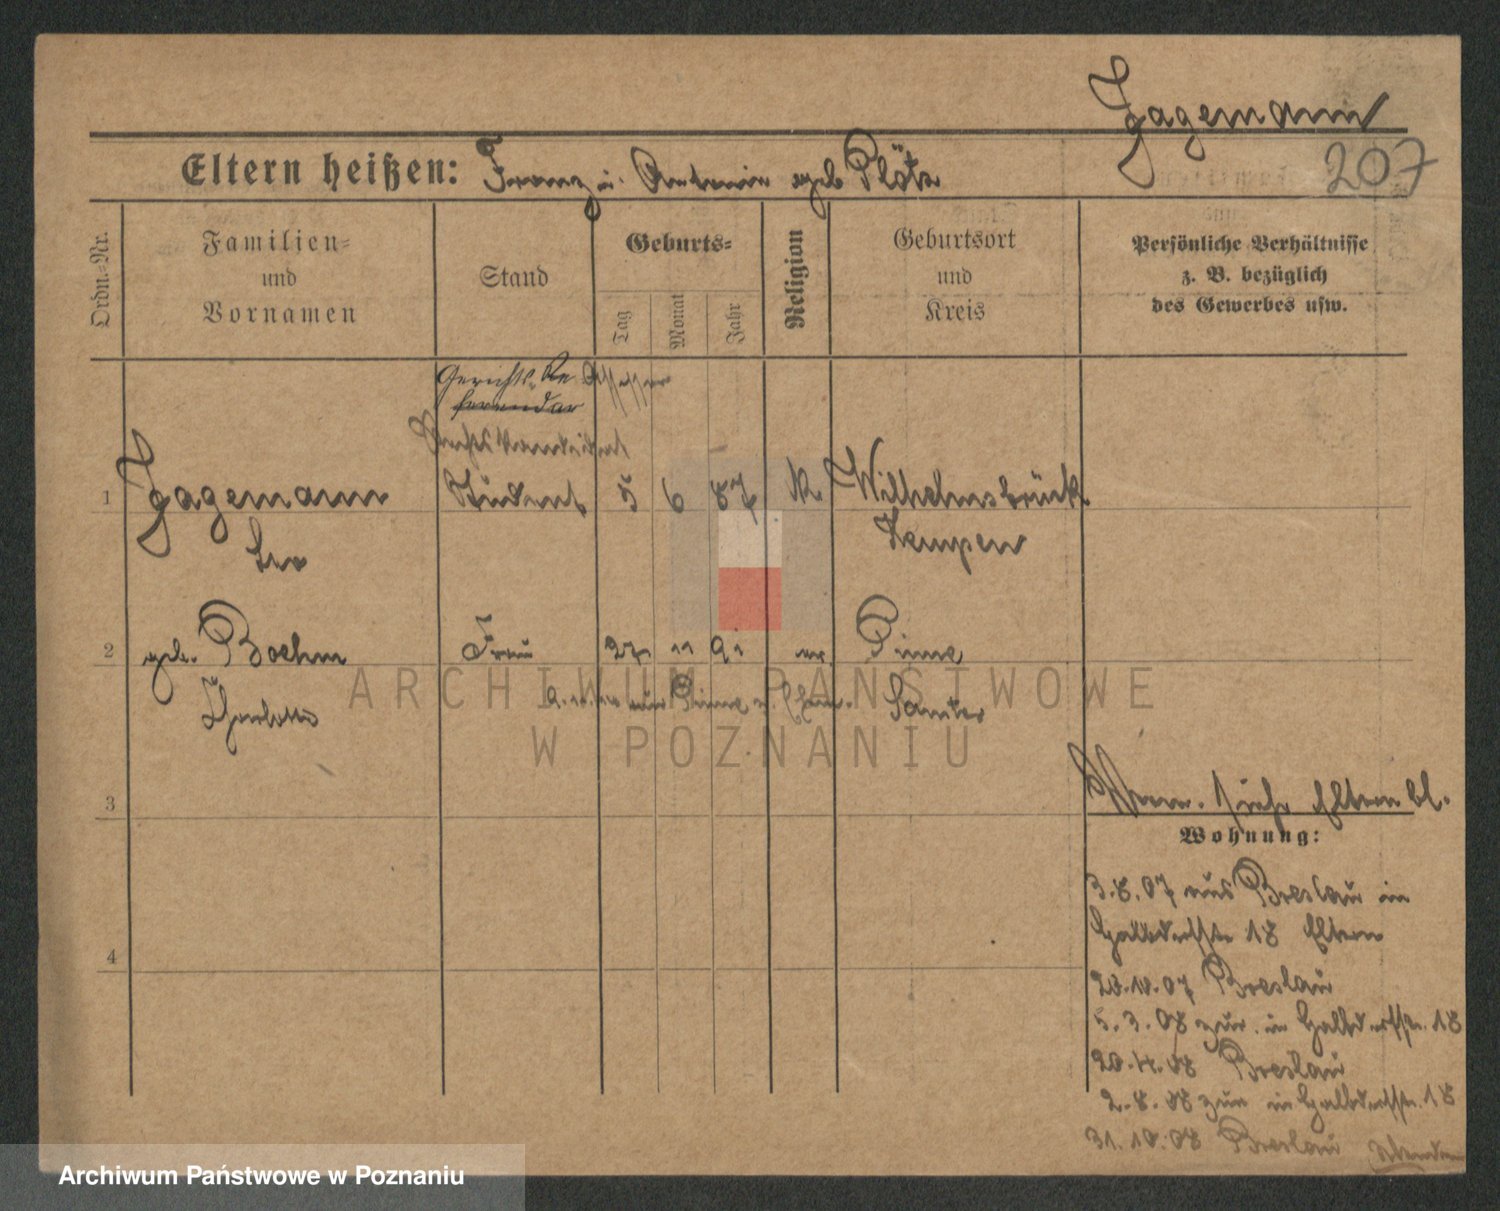 Jagemann
207
Eltern heißen: Franz u. Antonie geb Plötz
Ordn.-Nr.
Familien-
und
Vornamen
Stand
Geburts-
Tag
Monat
Jahr
Religion
Geburtsort
und
Kreis
Persönliche Verhältnisse
z. B. bezüglich
des Gewerbes usw.
Gerichts Re Assessor
ferendar
Rechtskandidat
1 Jagemann Student 5 6 87 K Wilhelmsbrück
Leo Kempen
2 geb. Boehm Frau 27 11 91 Pinne
Samter
3
4
Eltern bl.
Wohnung:
3.8.07 aus Breslau in
18 Eltern
28.10.07 Breslau
5.3.08 zur. in 18
20.4.08 Breslau
2.8.08 zur in 18
31.10.08 Breslau
ARCHIWUM PAŃSTWOWE
W POZNANIU
Archiwum Państwowe w Poznaniu